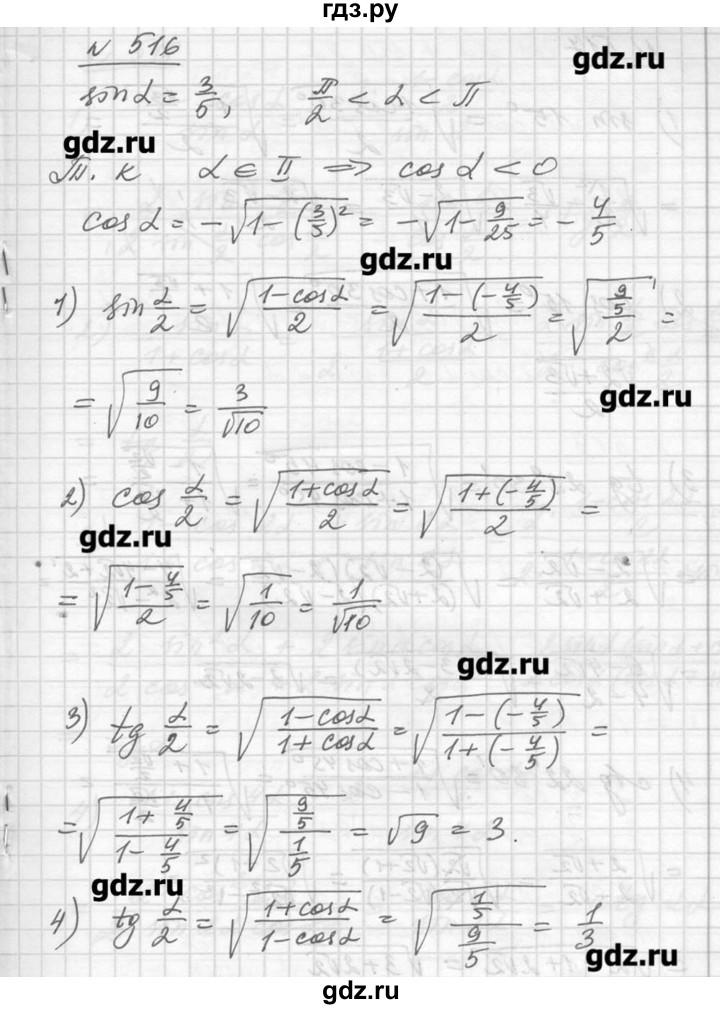 гдз.ру
№ 516
gdz.ru
sin α = 3/5, π/2 < α < π
gdz.ru
Т. к α ∈ II ⇒ cos α < 0
cos α = -√(1-(3/5)²) = -√(1-9/25) = -4/5.
gdz.ru
1) sin α/2 = √((1-cos α)/2) = √((1-(-4/5))/2) = √((9/5)/2) =
= √(9/10) = 3/√10
gdz.ru
2) cos α/2 = √((1+cos α)/2) = √((1+(-4/5))/2) =
gdz.ru
= √((1-4/5)/2) = √(1/10) = 1/√10
gdz.ru
3) tg α/2 = √((1-cos α)/(1+cos α)) = √((1-(-4/5))/(1+(-4/5))) =
= √((1+4/5)/(1-4/5)) = √((9/5)/(1/5)) = √9 = 3.
gdz.ru
4) tg α/2 = √((1+cos α)/(1-cos α)) = √((1/5)/(9/5)) = 1/3
gdz.ru
gdz.ru